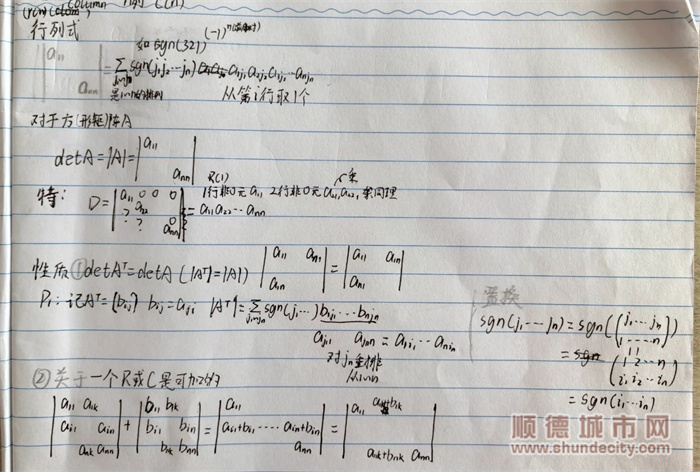 行列式
如 sgn(321)
= Σ sgn(j₁j₂…jₙ) a₁ⱼ₁a₂ⱼ₂a₃ⱼ₃…aₙⱼₙ
从第i行取1个
对于方(形矩)阵A
detA=|A|=|a₁₁ aₙₙ|
R(1)
特: D=|a₁₁ 0 0 0 ? a₂₂ ? ? 0 aₙₙ| = a₁₁a₂₂…aₙₙ
1行非0元a₁₁ 2行非0元a₂₁,a₂₂,
性质①detAᵀ=detA (|Aᵀ|=|A|)
|a₁₁ aₙ₁ a₁ₙ aₙₙ| = |a₁₁ a₁ₙ aₙ₁ aₙₙ|
P₁: 记Aᵀ=[bᵢⱼ] bᵢⱼ=aⱼᵢ |Aᵀ|=Σ sgn(j₁…)b₁ⱼ₁…bₙⱼₙ
j₁…jₙ
aⱼ₁₁ aⱼₙₙ = a₁ᵢ₁…aₙᵢₙ
对jₙ重排
从1~n
置换
sgn(j₁…jₙ)=sgn((j₁…jₙ
1……n))
= (1 2…n
i₁ i₂…iₙ)
= sgn(i₁…iₙ)
②关于一个R或C是可加的
|a₁₁ a₁ₖ aᵢ₁ aᵢₙ aₙₖ aₙₙ| + |b₁₁ b₁ₖ bᵢ₁ bᵢₙ bₙₖ bₙₙ| = |a₁₁ aᵢ₁+bᵢ₁……aᵢₙ+bᵢₙ aₙₙ| = |a₁₁ a₁ₖ+b₁ₖ aₙₖ+bₙₖ aₙₙ|
顺德城市网
www.shundecity.com